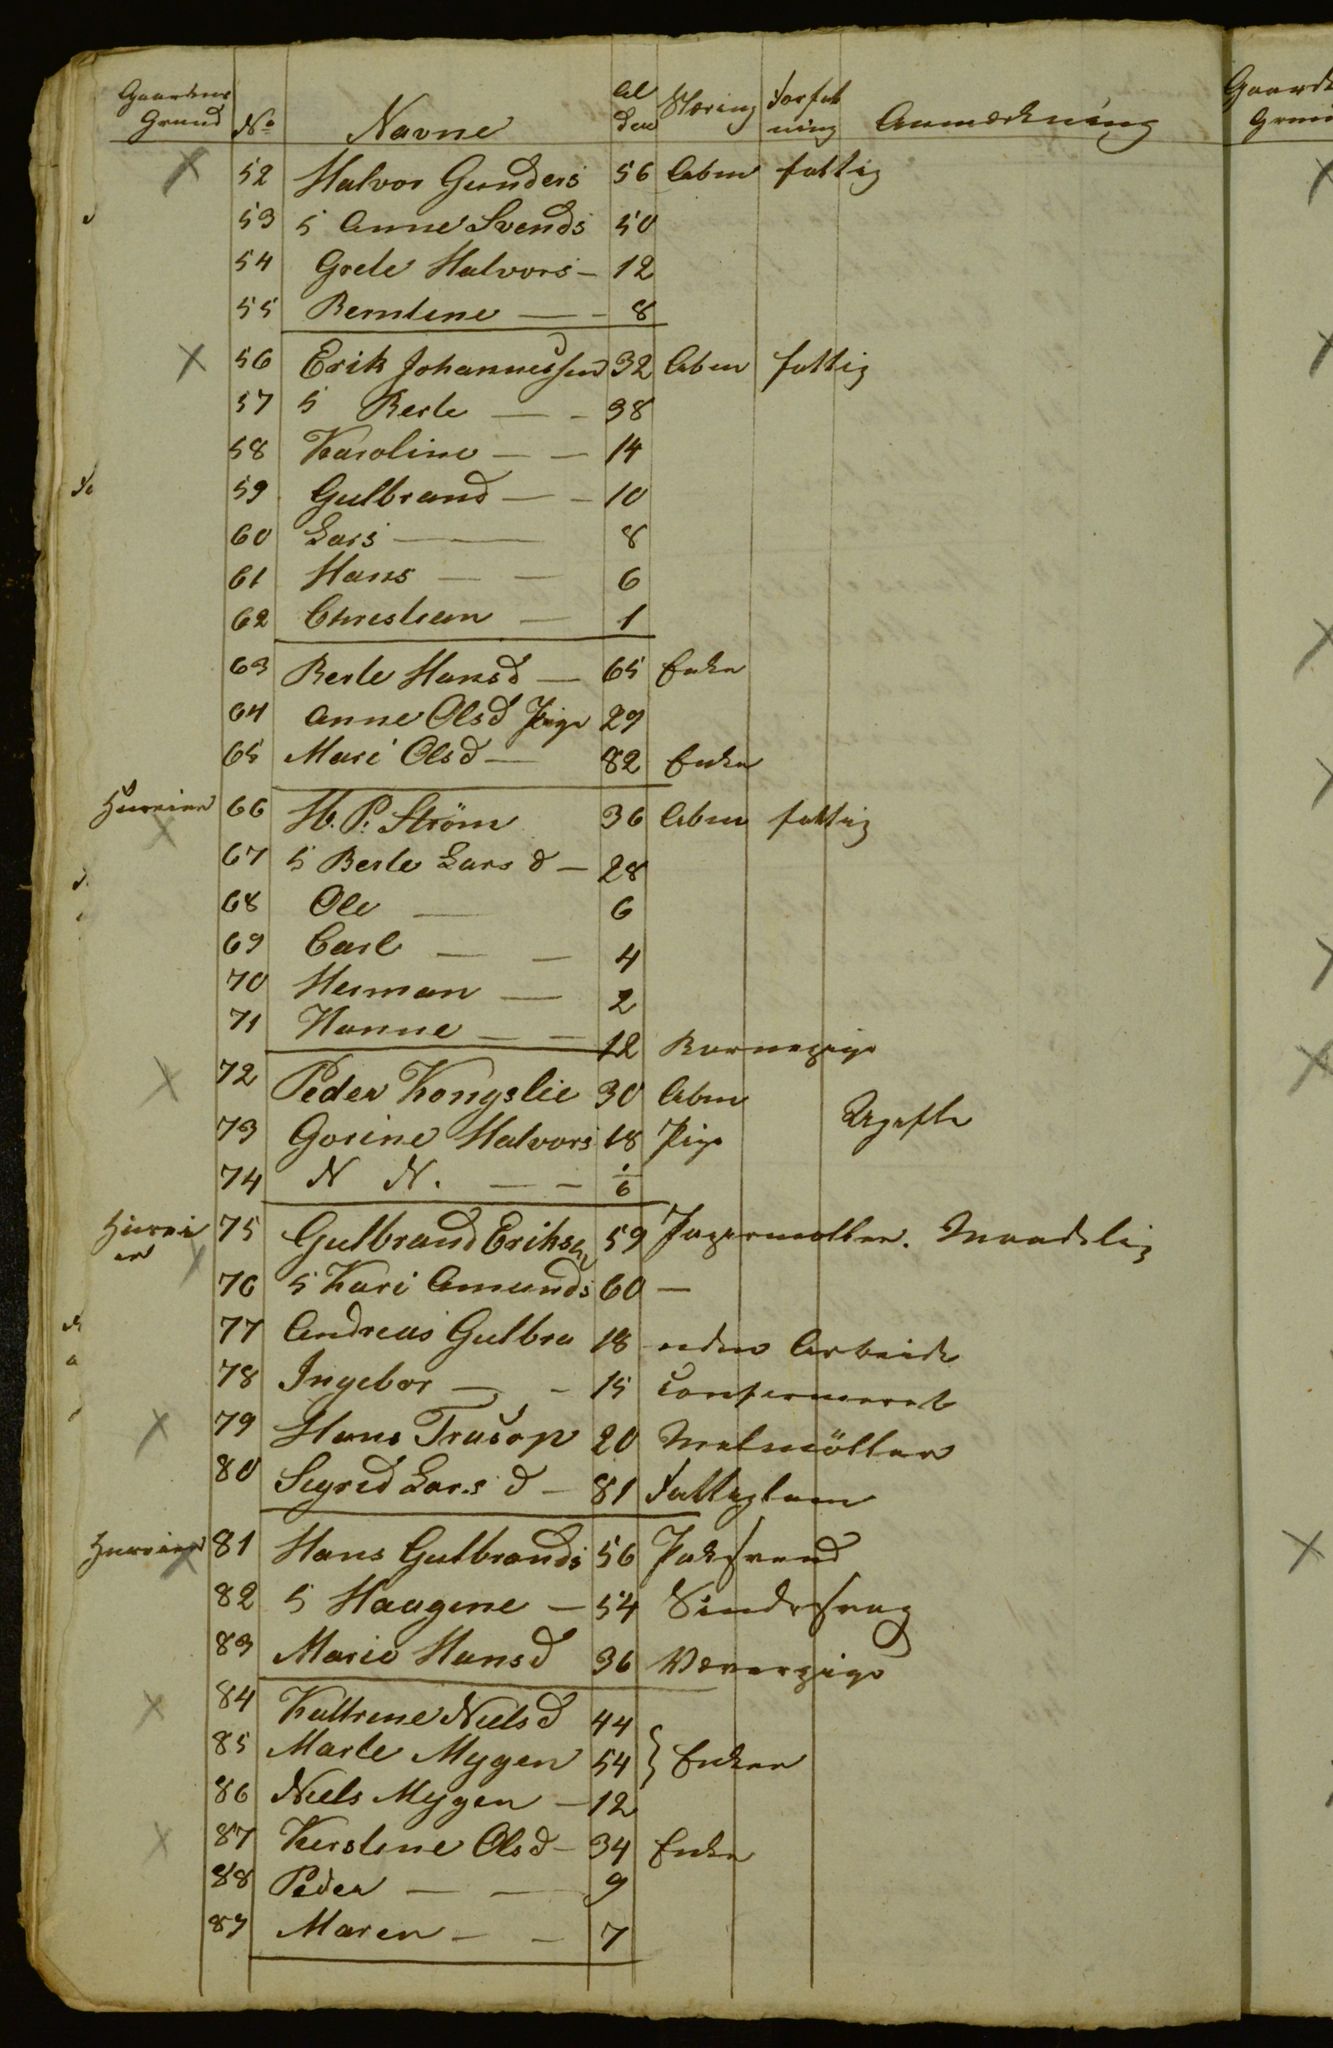 Gaardens Grund No Navne Alderen Næring Forfatning Anmærkning
52 Halvor Gunders 56 Abm fattig
53 5 Anne Svends 50
54 Grete Halvors - 12
55 Berntine - - 8
56 Erik Johannessen 32 Abm fattig
57 5 Berte - - 38
58 Karoline - - 14
59 Gulbrand - - 10
60 Lars - 8
61 Hans - - 6
62 Christian - 1
63 Berte Hansd - 65 Enke
64 Anne Olsd Pige 29
65 Mari Olsd - 82 Enke
Huseier 66 H. P. Ström 36 Abm fattig
67 5 Berte Larsd - 28
68 Ole - 6
69 Carl - - 4
70 Herman - 2
71 Hanne - - 12 Barnepige
72 Peder Kongslie 30 Abm
73 Gorine Halvors 18 Pige Ugifte
74 N N. - - 1/6
Huseier 75 Gulbrand Eriksen 59 Papermøller. Maadelig
76 5 Kari Amunds 60 -
77 Andreas Gulbra 18 uden Arbeide
78 Ingebor - - 15 Confirmeret
79 Hans Trasop 20 Melmöller
80 Sigrid Larsd - 81 Fattiglem
Huseier 81 Hans Gulbrands 56 Paksvend
82 5 Haagine - 54 Sindssvag
83 Marie Hansd 36 Væverpige
84 Kattrine Nielsd 44
85 Marte Mygen 54 } Enker
86 Niels Mygen - 12
87 Kirstine Olsd - 34 Enke
88 Peder - - 9
89 Maren - - 7